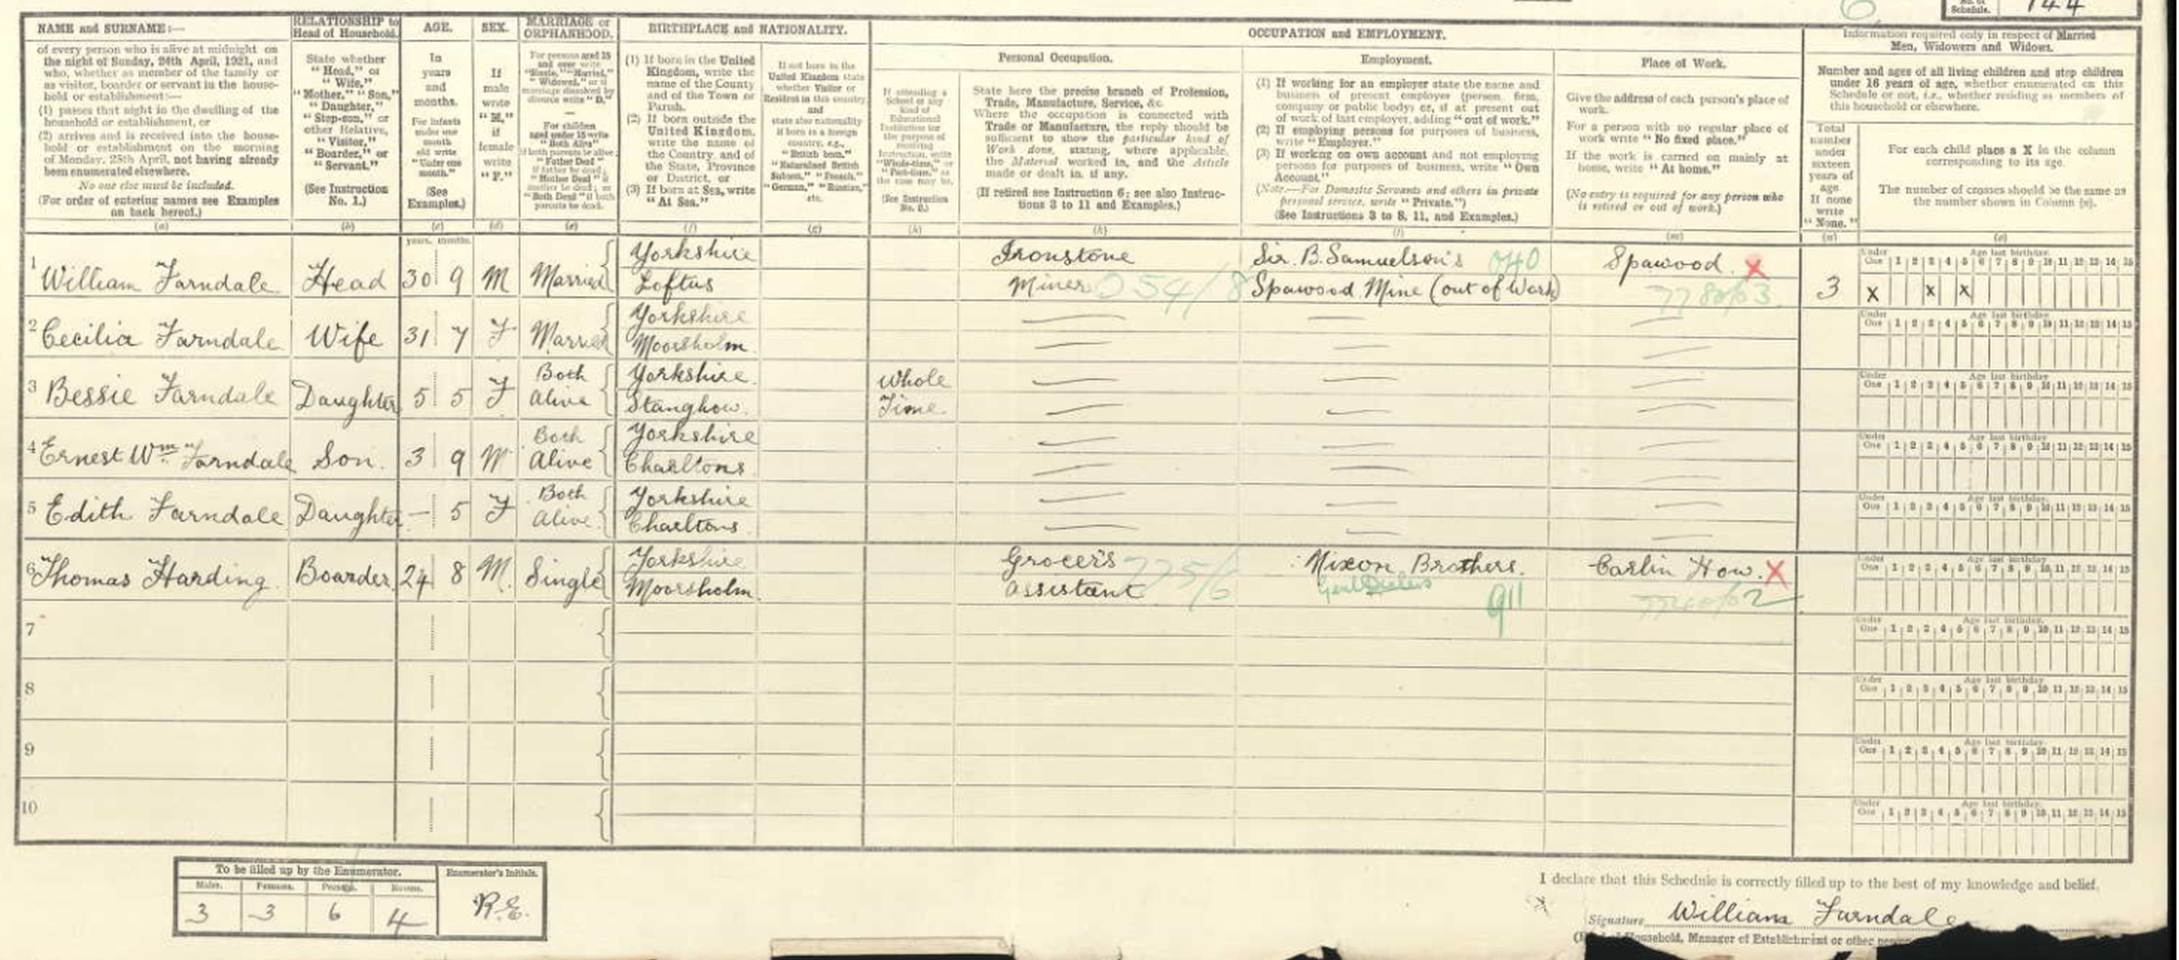 No. of Schedule. 144
NAME and SURNAME:—
of every person who is alive at midnight on
the night of Sunday, 24th April, 1921, and
who, whether as member of the family or
as visitor, boarder or servant in the house-
hold or establishment:—
(1) passes that night in the dwelling of the
household or establishment, or
(2) arrives and is received into the house-
hold or establishment on the morning
of Monday, 25th April, not having already
been enumerated elsewhere.
No one else must be included.
(For order of entering names see Examples
on back hereof.)
(a)
RELATIONSHIP to
Head of Household.
State whether
"Head," or
"Wife,"
"Mother," "Son,"
"Daughter,"
"Step-son," or
other Relative,
"Visitor,"
"Boarder," or
"Servant."
(See Instruction
No. 1.)
(b)
AGE.
In
years
and
months.
For infants
under one
month
old write
"Under one
month."
(See
Examples.)
(c)
SEX.
If
male
write
"M,"
if
female
write
"F."
(d)
MARRIAGE or
ORPHANHOOD.
For persons aged 15
and over write
"Single," "Married,"
"Widowed," or if
marriage dissolved by
divorce write "D."
For children
aged under 15 write
"Both Alive"
if both parents be alive;
"Father Dead"
if father be dead;
"Mother Dead" if
mother be dead; or
"Both Dead" if both
parents be dead.
(e)
BIRTHPLACE and NATIONALITY.
(1) If born in the United
Kingdom, write the
name of the County
and of the Town or
Parish.
(2) If born outside the
United Kingdom,
write the name of
the Country, and of
the State, Province
or District, or
(3) If born at Sea, write
"At Sea."
(f)
If not born in the
United Kingdom state
whether Visitor or
Resident in this country
and
state also nationality
if born in a foreign
country, e.g.,
"British born,"
"Naturalised British
Subject," "French,"
"German," "Russian,"
etc.
(g)
If attending a
School or any
kind of
Educational
Institution for
the purpose of
receiving
Instruction, write
"Whole-time," or
"Part-time," as
the case may be.
(See Instruction
(h)
OCCUPATION and EMPLOYMENT.
Personal Occupation.
State here the precise branch of Profession,
Trade, Manufacture, Service, &c.
Where the occupation is connected with
Trade or Manufacture, the reply should be
sufficient to show the particular kind of
Work done, stating, where applicable,
the Material worked in, and the Article
made or dealt in, if any.
(If retired see Instruction 6; see also Instruc-
tions 3 to 11 and Examples.)
(k)
Employment.
(1) If working for an employer state the name and
business of present employer (person, firm,
company or public body) or, if at present out
of work, of last employer, adding "out of work."
(2) If employing persons for purposes of business,
write "Employer."
(3) If working on own account and not employing
persons for purposes of business, write "Own
Account."
(Note.—For Domestic Servants and others in private
personal service, write "Private.")
(See Instructions 3 to 8, 11, and Examples.)
(l)
Place of Work.
Give the address of each person's place of
work.
For a person with no regular place of
work write "No fixed place."
If the work is carried on mainly at
home, write "At home."
(No entry is required for any person who
is retired or out of work.)
(m)
Information required only in respect of Married
Men, Widowers and Widows.
Number and ages of all living children and step children
under 16 years of age, whether enumerated on this
Schedule or not, i.e., whether residing as members of
this household or elsewhere.
Total
number
under
sixteen
years of
age.
If none
write
"None."
(n)
For each child place a X in the column
corresponding to its age.
The number of crosses should be the same as
the number shown in Column (n).
(o)
years. months.
1 William Farndale Head 30 9 M Married Yorkshire Loftus Ironstone Miner 054/8 Sir B. Samuelson's 040 Spawood Mine (out of Work) Spawood. X 3 X X X
2 Cecilia Farndale Wife 31 7 F Married Yorkshire Moorsholm
3 Bessie Farndale Daughter 5 5 F Both Alive Yorkshire Stanghow. Whole Time
4 Ernest Wm Farndale Son 3 9 M Both Alive Yorkshire Charltons
5 Edith Farndale Daughter — 5 F Both Alive Yorkshire Charltons
6 Thomas Harding Boarder 24 8 M Single Yorkshire Moorsholm Grocer's assistant 775/6 Nixon Brothers. 911 Carlin How. X
7
8
9
10
Under One 1 2 3 4 5 6 7 8 9 10 11 12 13 14 15
Age last birthday
To be filled up by the Enumerator.
Males. Females. Persons. Rooms.
3 3 6 4
Enumerator's Initials.
R.E.
I declare that this Schedule is correctly filled up to the best of my knowledge and belief.
Signature William Farndale
Household, Manager of Establishment or other